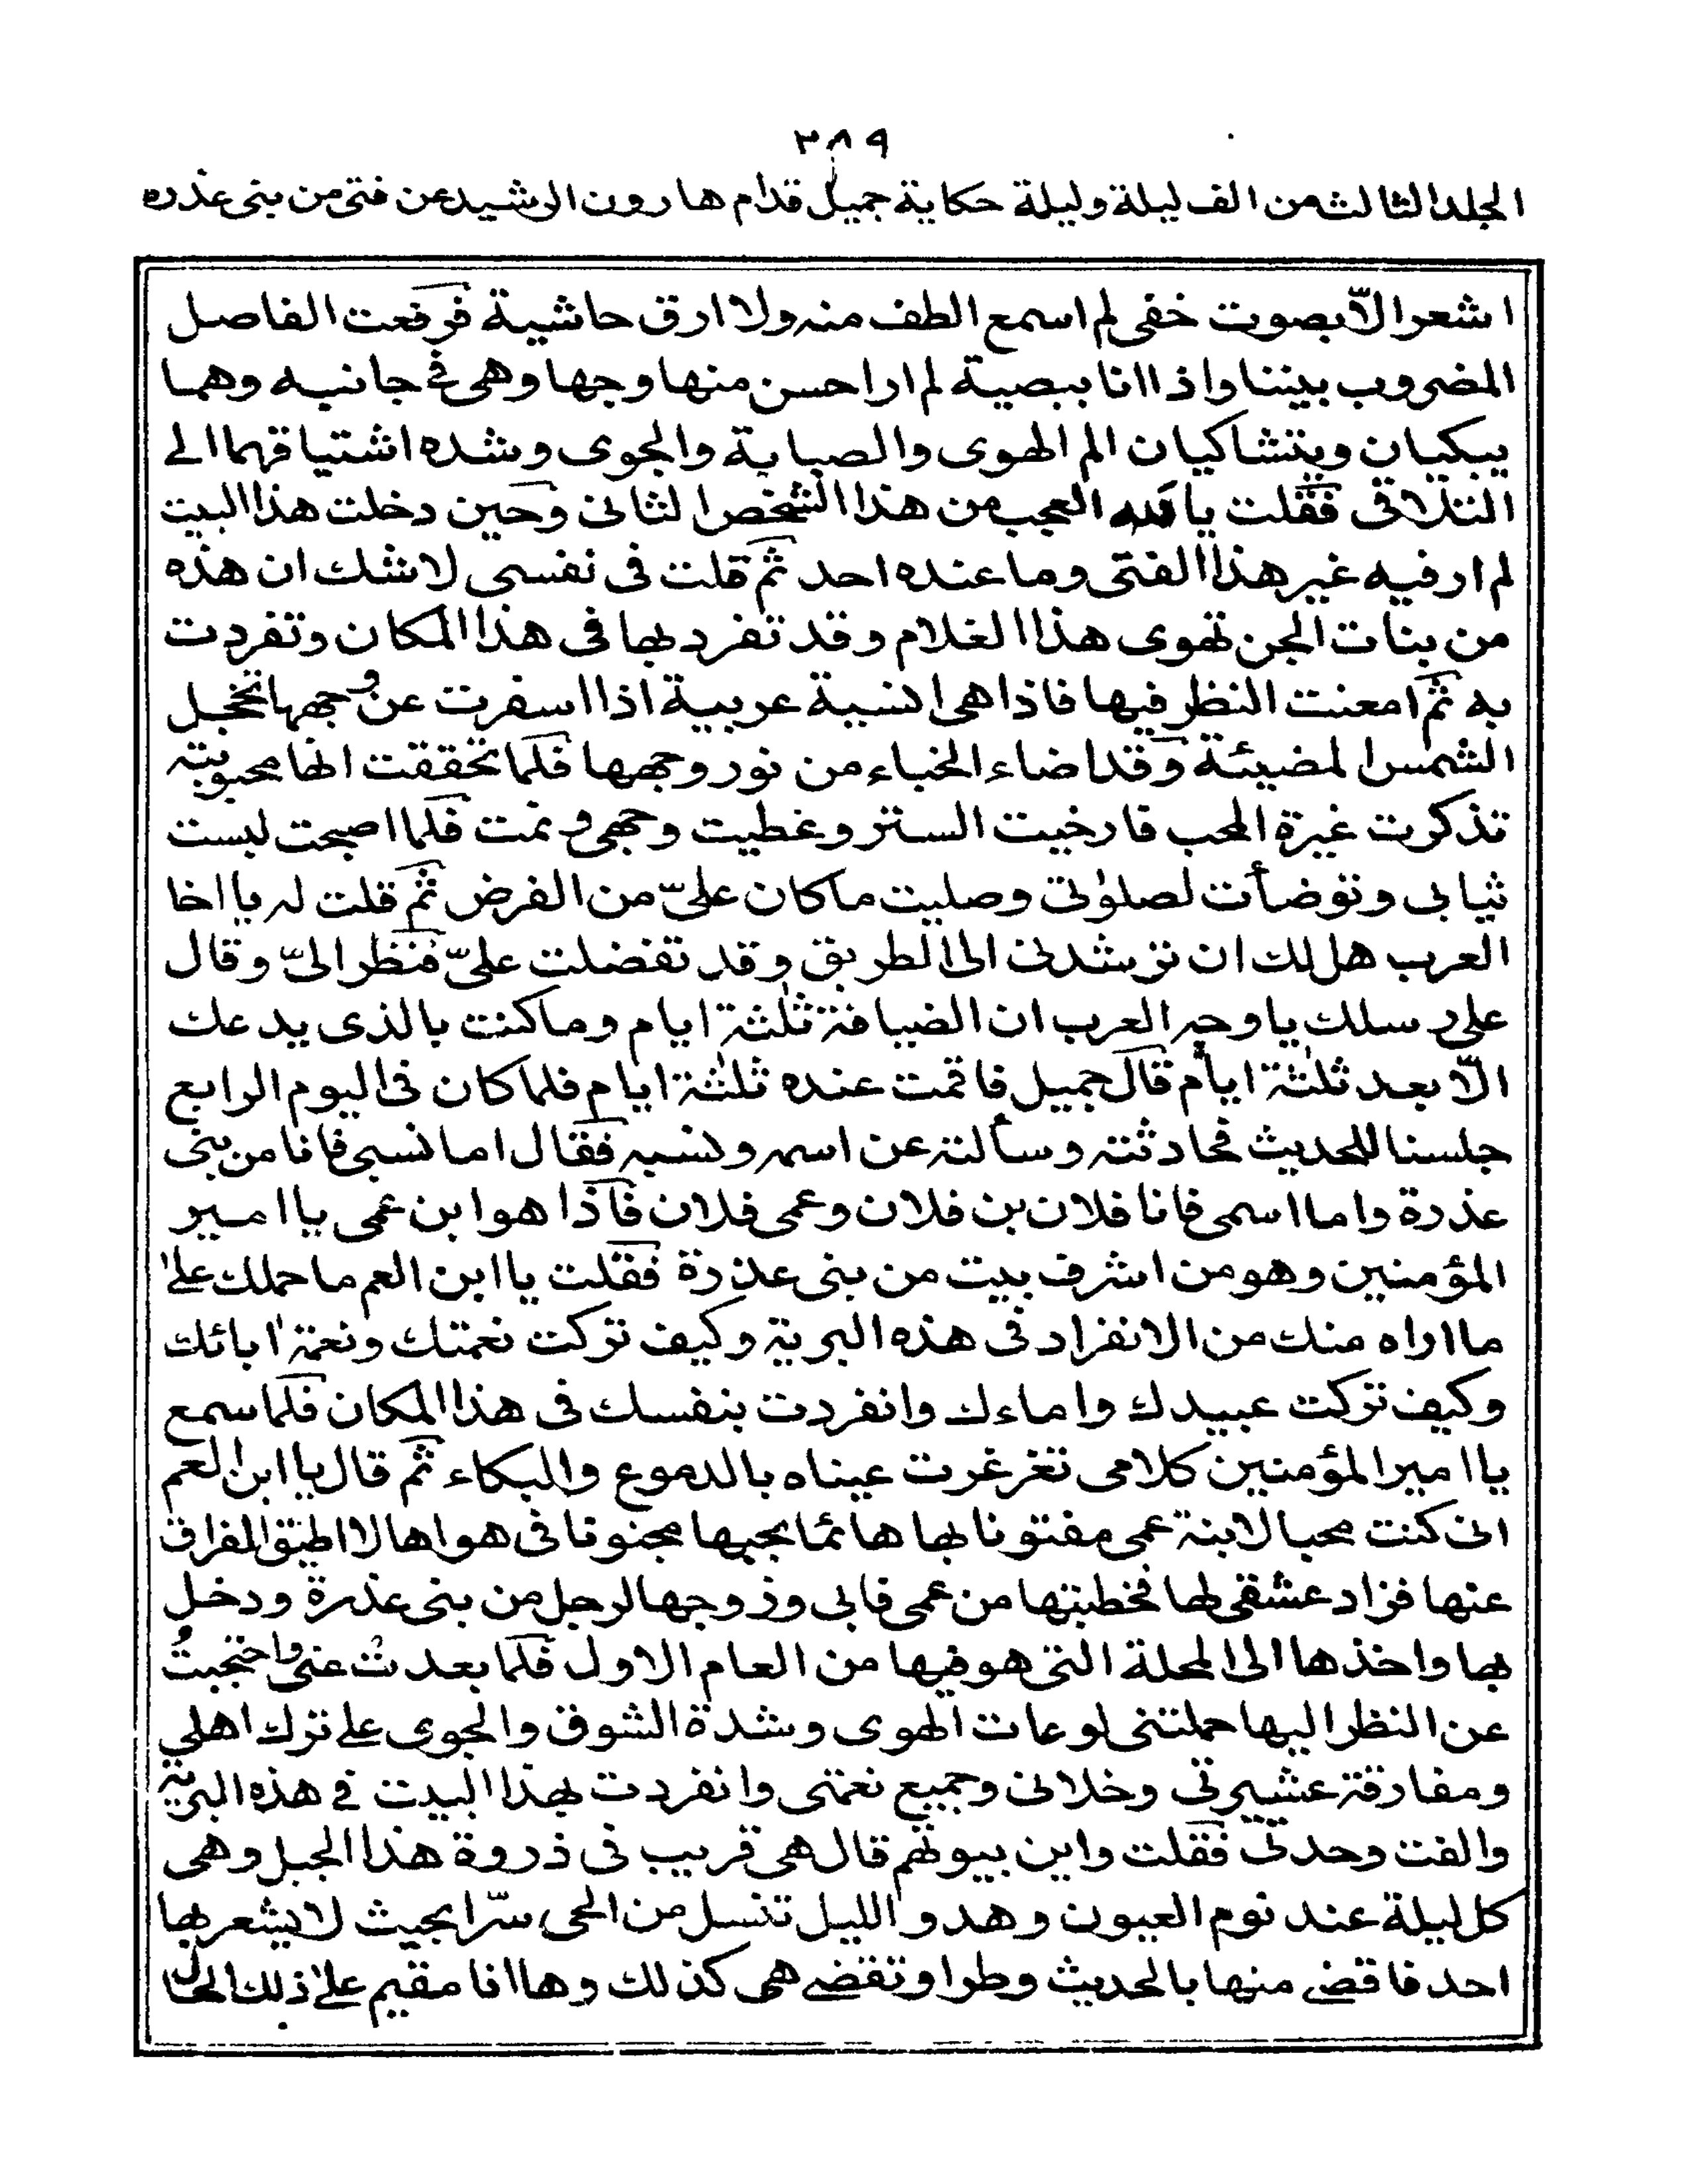 ٣٨٩
المجلد الثالث من الف ليلة وليلة حكاية جميل قدام هارون الرشيد عن فتى من بنى عذره
اشعر الّا بصوت خفى لم اسمع الطف منه ولا ارق حاشية فرفعت الفاصل
المضروب بيننا واذا انا ببصبية لم ار احسن منها وجها وهى فى جانبه وهما
يبكيان ويتشاكيان الم الهوى والصبابة والجوى وشده اشتياقهما الے
التلاقى فقلت يا لله العجب من هذا الشخص الثانى وحين دخلت هذا البيت
لم ار فيه غير هذا الفتى وما عنده احد ثم قلت فى نفسى لا شك ان هذه
من بنات الجن تهوى هذا الغلام وقد تفرد بها فى هذا المكان وتفردت
به ثم امعنت النظر فيها فاذا هى انسية عربية اذا اسفرت عن وجهها تخجل
الشمس المضيئة وقد اضاء الخباء من نور وجهها فلما تحققت انها محبوبته
تذكرت غيرة المحب فارخيت الستر وغطيت وجهى ونمت فلما اصبحت لبست
ثيابى وتوضأت لصلوٰتى وصليت ما كان علىّ من الفرض ثم قلت له يا اخا
العرب هل لك ان ترشدنى الى الطريق وقد تفضلت علىّ فنظر الىّ وقال
على رسلك يا وجه العرب ان الضيافة ثلٰثة ايام وما كنت بالذى يدعك
الّا بعد ثلٰثة ايام قال جميل فاقمت عنده ثلٰثة ايام فلما كان فى اليوم الرابع
جلسنا للحديث فحادثته وسألته عن اسمه ونسبه فقال اما نسبى فانا من بنى
عذرة واما اسمى فانا فلان بن فلان وعمى فلان فاذا هو ابن عمى يا امير
المؤمنين وهو من اشرف بيت من بنى عذرة فقلت يا ابن العم ما حملك علىٰ
ما اراه منك من الانفراد فى هذه البرية وكيف تركت نعمتك ونعمة اٰبائك
وكيف تركت عبيدك واماءك وانفردت بنفسك فى هذا المكان فلما سمع
يا امير المؤمنين كلامى تغرغرت عيناه بالدموع والبكاء ثم قال يا ابن العم
انى كنت محبا لابنة عمى مفتونا بها هائما بحبها مجنونا فى هواها لا اطيق الفراق
عنها فزاد عشقى لها فخطبتها من عمى فابى وزوجها لرجل من بنى عذرة ودخل
بها واخذها الى المحلة التى هو فيها من العام الاول فلما بعدتْ عنى واحتجبتُ
عن النظر اليها حملتنى لوعات الهوى وشدة الشوق والجوى على ترك اهلى
ومفارقة عشيرتى وخلانى وجميع نعمتى وانفردت بهذا البيت فى هذه البرية
والفت وحدتى فقلت واين بيوتهم قال هى قريب فى ذروة هذا الجبل وهى
كل ليلة عند نوم العيون وهدو الليل تنسل من الحى سرّا بحيث لا يشعر بها
احد فاقضے منها بالحديث وطرا وتقضے هى كذلك وها انا مقيم على ذلك الحال